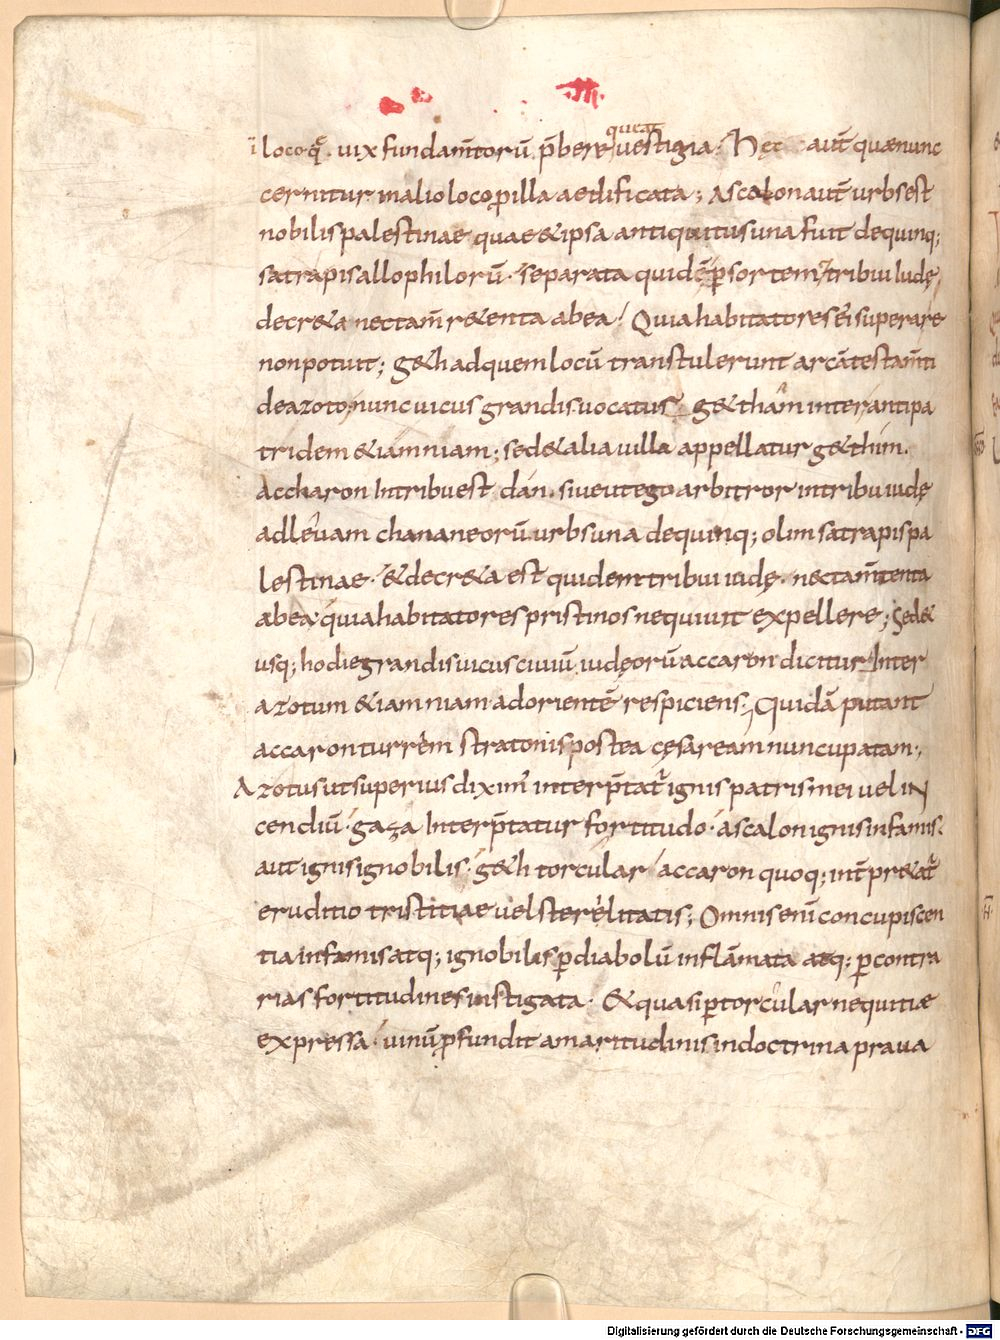 queat
ī loco q̄ . uix fundam̄torū p̄bere uestigia . Hęc aut̄ quae nunc
cernitur in alio loco p illa aedificata ; Ascalon aut̄ urbs est
nobilis palestinae quae & ipsa antiquitus una fuit de quinq;
satrapis allophilorū . separata quidē p sortem tribui iudę
decr&a nec tam̄ r&enta ab ea . Quia habitatores ei superare
non potuit ; g&h ad quem locū transtulerunt arcā testam̄ti
de azoto . nunc uicus grandis uocatus g&tham inter antipa
tridem & iamniam ; sed & alia uilla appellatur g&thim .
Accharon In tribu est dan . siue ut ego arbitror in tribu iudę
ad leuam chananeorū urbs una de quinq; olim satrapis pa
lestinae . & decr&a est quidem tribui iudę . nec tam̄ tenta
ab ea quia habitatores pristinos nequiuit expellere ; Sed &
usq; hodie grandis uicus ciuiū iudęorū accaron dicitur Inter
azotum & iamniam ad orientē respiciens . Quidā putant
accaron turrem stratonis postea cęsaream nuncupatam ;
Azotus ut superius diximꝰ interp̄tat̄ ignis patris mei uel in
cendiū . gaza Interp̄tatur fortitudo . ascalon ignis infamis .
aut ignis ignobilis . g&h torcular accaron quoq; int̄pr&at̄
eruditio tristitiae uel sterelitatis ; Omnis enī concupiscen
tia infamis atq; ignobilis p diabolū inflāmata atq; p contra
rias fortitudines instigata . & quasi p torcular nequitiae
expressa . uinū pfundit amaritudinis in doctrina praua
Digitalisierung gefördert durch die Deutsche Forschungsgemeinschaft - DFG